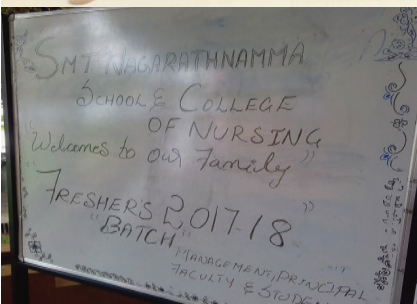 SMT NAGARATHNAMMA
SCHOOL & COLLEGE
OF NURSING
"Welcomes to our Family"
FRESHER'S 2017-18 "
"BATCH"
MANAGEMENT, PRINCIPAL
FACULTY &